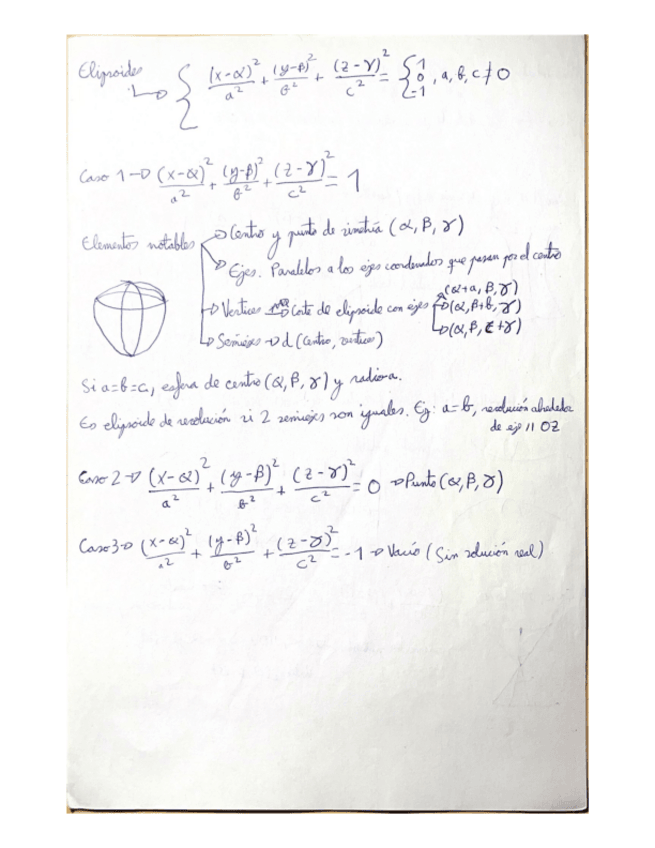 Elipsoides → { (x-α)²/a² + (y-β)²/b² + (z-γ)²/c² = { 1 0 -1 , a, b, c ≠ 0
Caso 1 → (x-α)²/a² + (y-β)²/b² + (z-γ)²/c² = 1
Elementos notables
→ Centro y punto de simetría (α, β, γ)
→ Ejes. Paralelos a los ejes coordenados que pasan por el centro
→ Vertices → Corte de elipsoide con ejes
→ (α+a, β, γ)
→ (α, β+b, γ)
→ (α, β, c+γ)
→ Semiejes → d (Centro, vertices)
Si a=b=c, esfera de centro (α, β, γ) y radio a.
Es elipsoide de revolución si 2 semiejes son iguales. Ej: a=b, revolución alrededor
de eje // OZ
Caso 2 → (x-α)²/a² + (y-β)²/b² + (z-γ)²/c² = 0 → Punto (α, β, γ)
Caso 3 → (x-α)²/a² + (y-β)²/b² + (z-γ)²/c² = -1 → Vacío (Sin solución real)